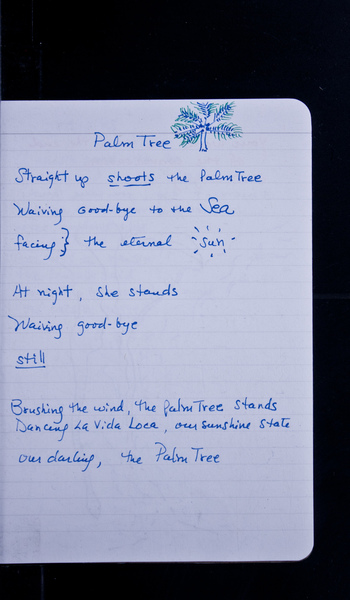 Palm Tree
Straight up shoots the Palm Tree
Waiving Good-bye to the Sea
facing} the eternal Sun
At night, She stands
Waiving good-bye
still
Brushing the wind, the palm Tree stands
Dancing La Vida Loca, our sunshine state
our darling, the Palm Tree